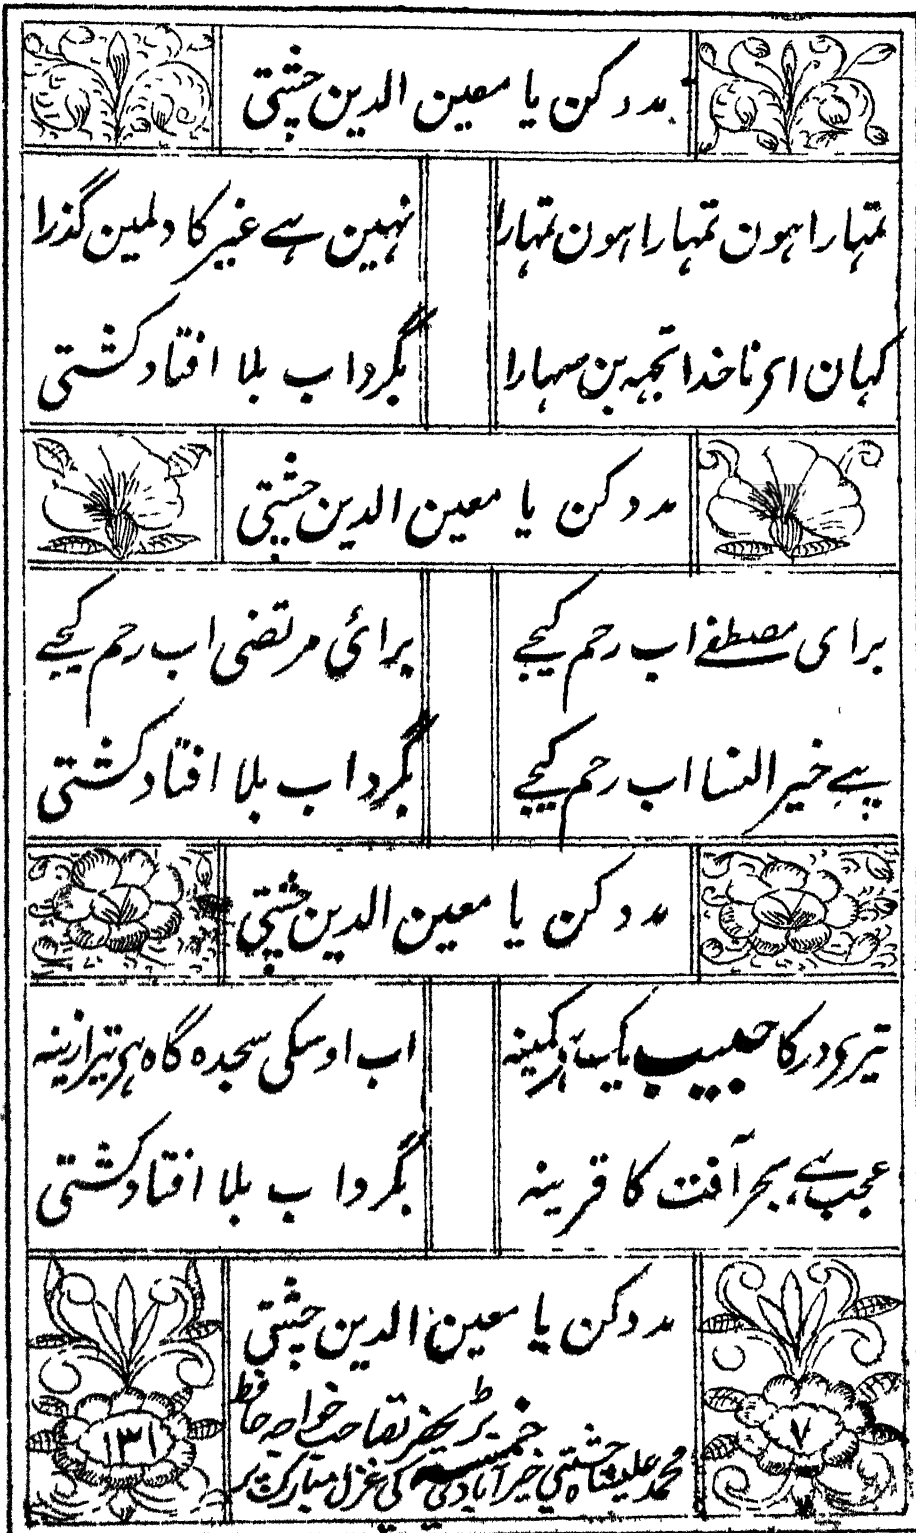 مدد کن یا معین الدین چشتی
تمہارا ہون تمہارا ہون تمہارا نہین ہے غیر کا دلمین گذرا
کہان اے ناخدا تجہہ بن سہارا بگرداب بلا افتاد کشتی
مدد کن یا معین الدین چشتی
برای مصطفے اب رحم کیجے برائ مرتضی اب رحم کیجے
پےٴ خیر النسا اب رحم کیجے بگرداب بلا افتاد کشتی
مدد کن یا معین الدین چشتی
تیری در کا حبیب یک کمینہ اب اوسکی سجدہ گاہ ہے تیرا زینہ
عجب ہے بحر آفت کا قرینہ بگرداب بلا افتاد کشتی
مدد کن یا معین الدین چشتی
خواجہ حافظ
محمد علیشاہ چشتی خیرآبادی کی غزل مبارک پر
خمسہ
٧
١٣١